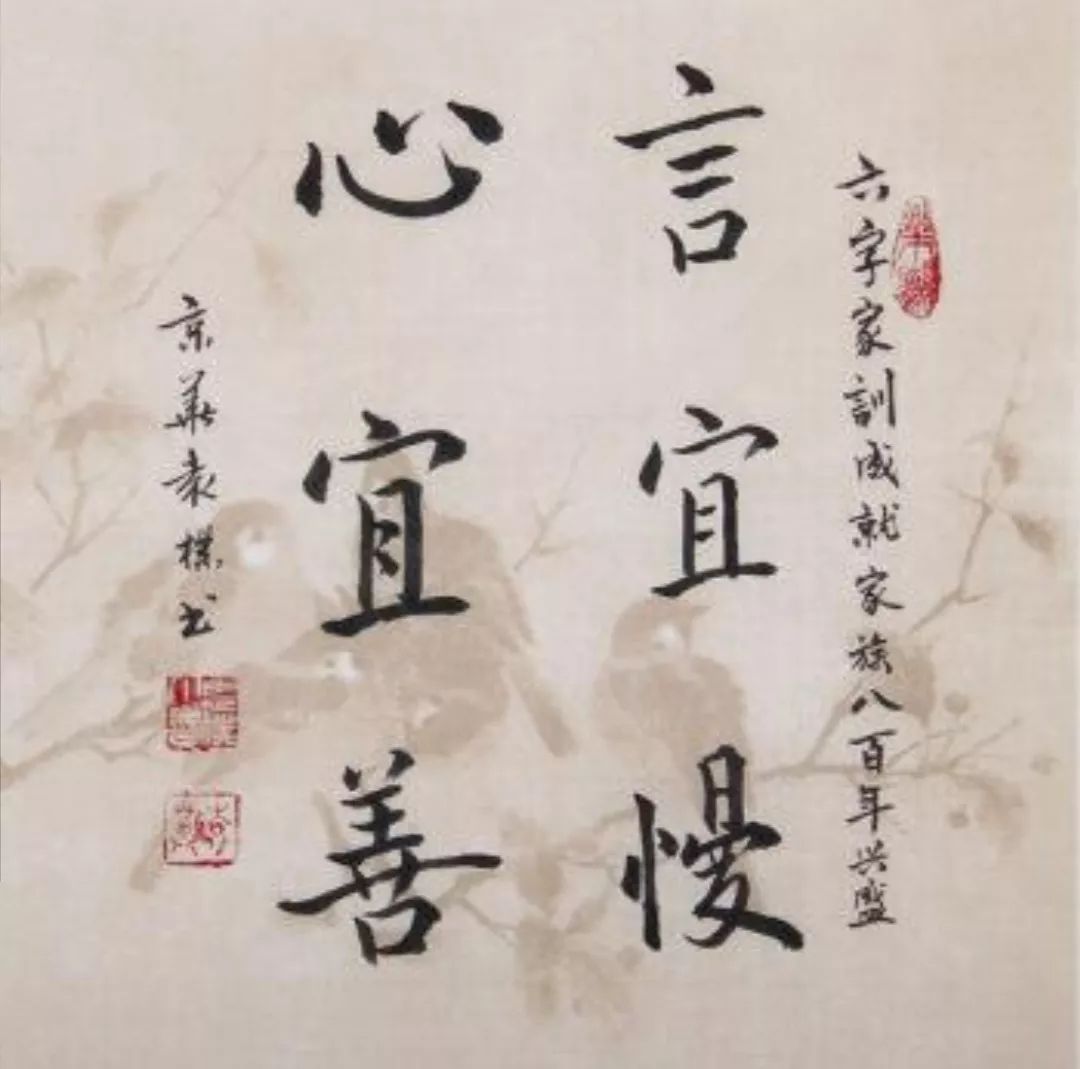 六字家訓成就家族八百年兴盛
言宜慢
心宜善
京華袁樸书